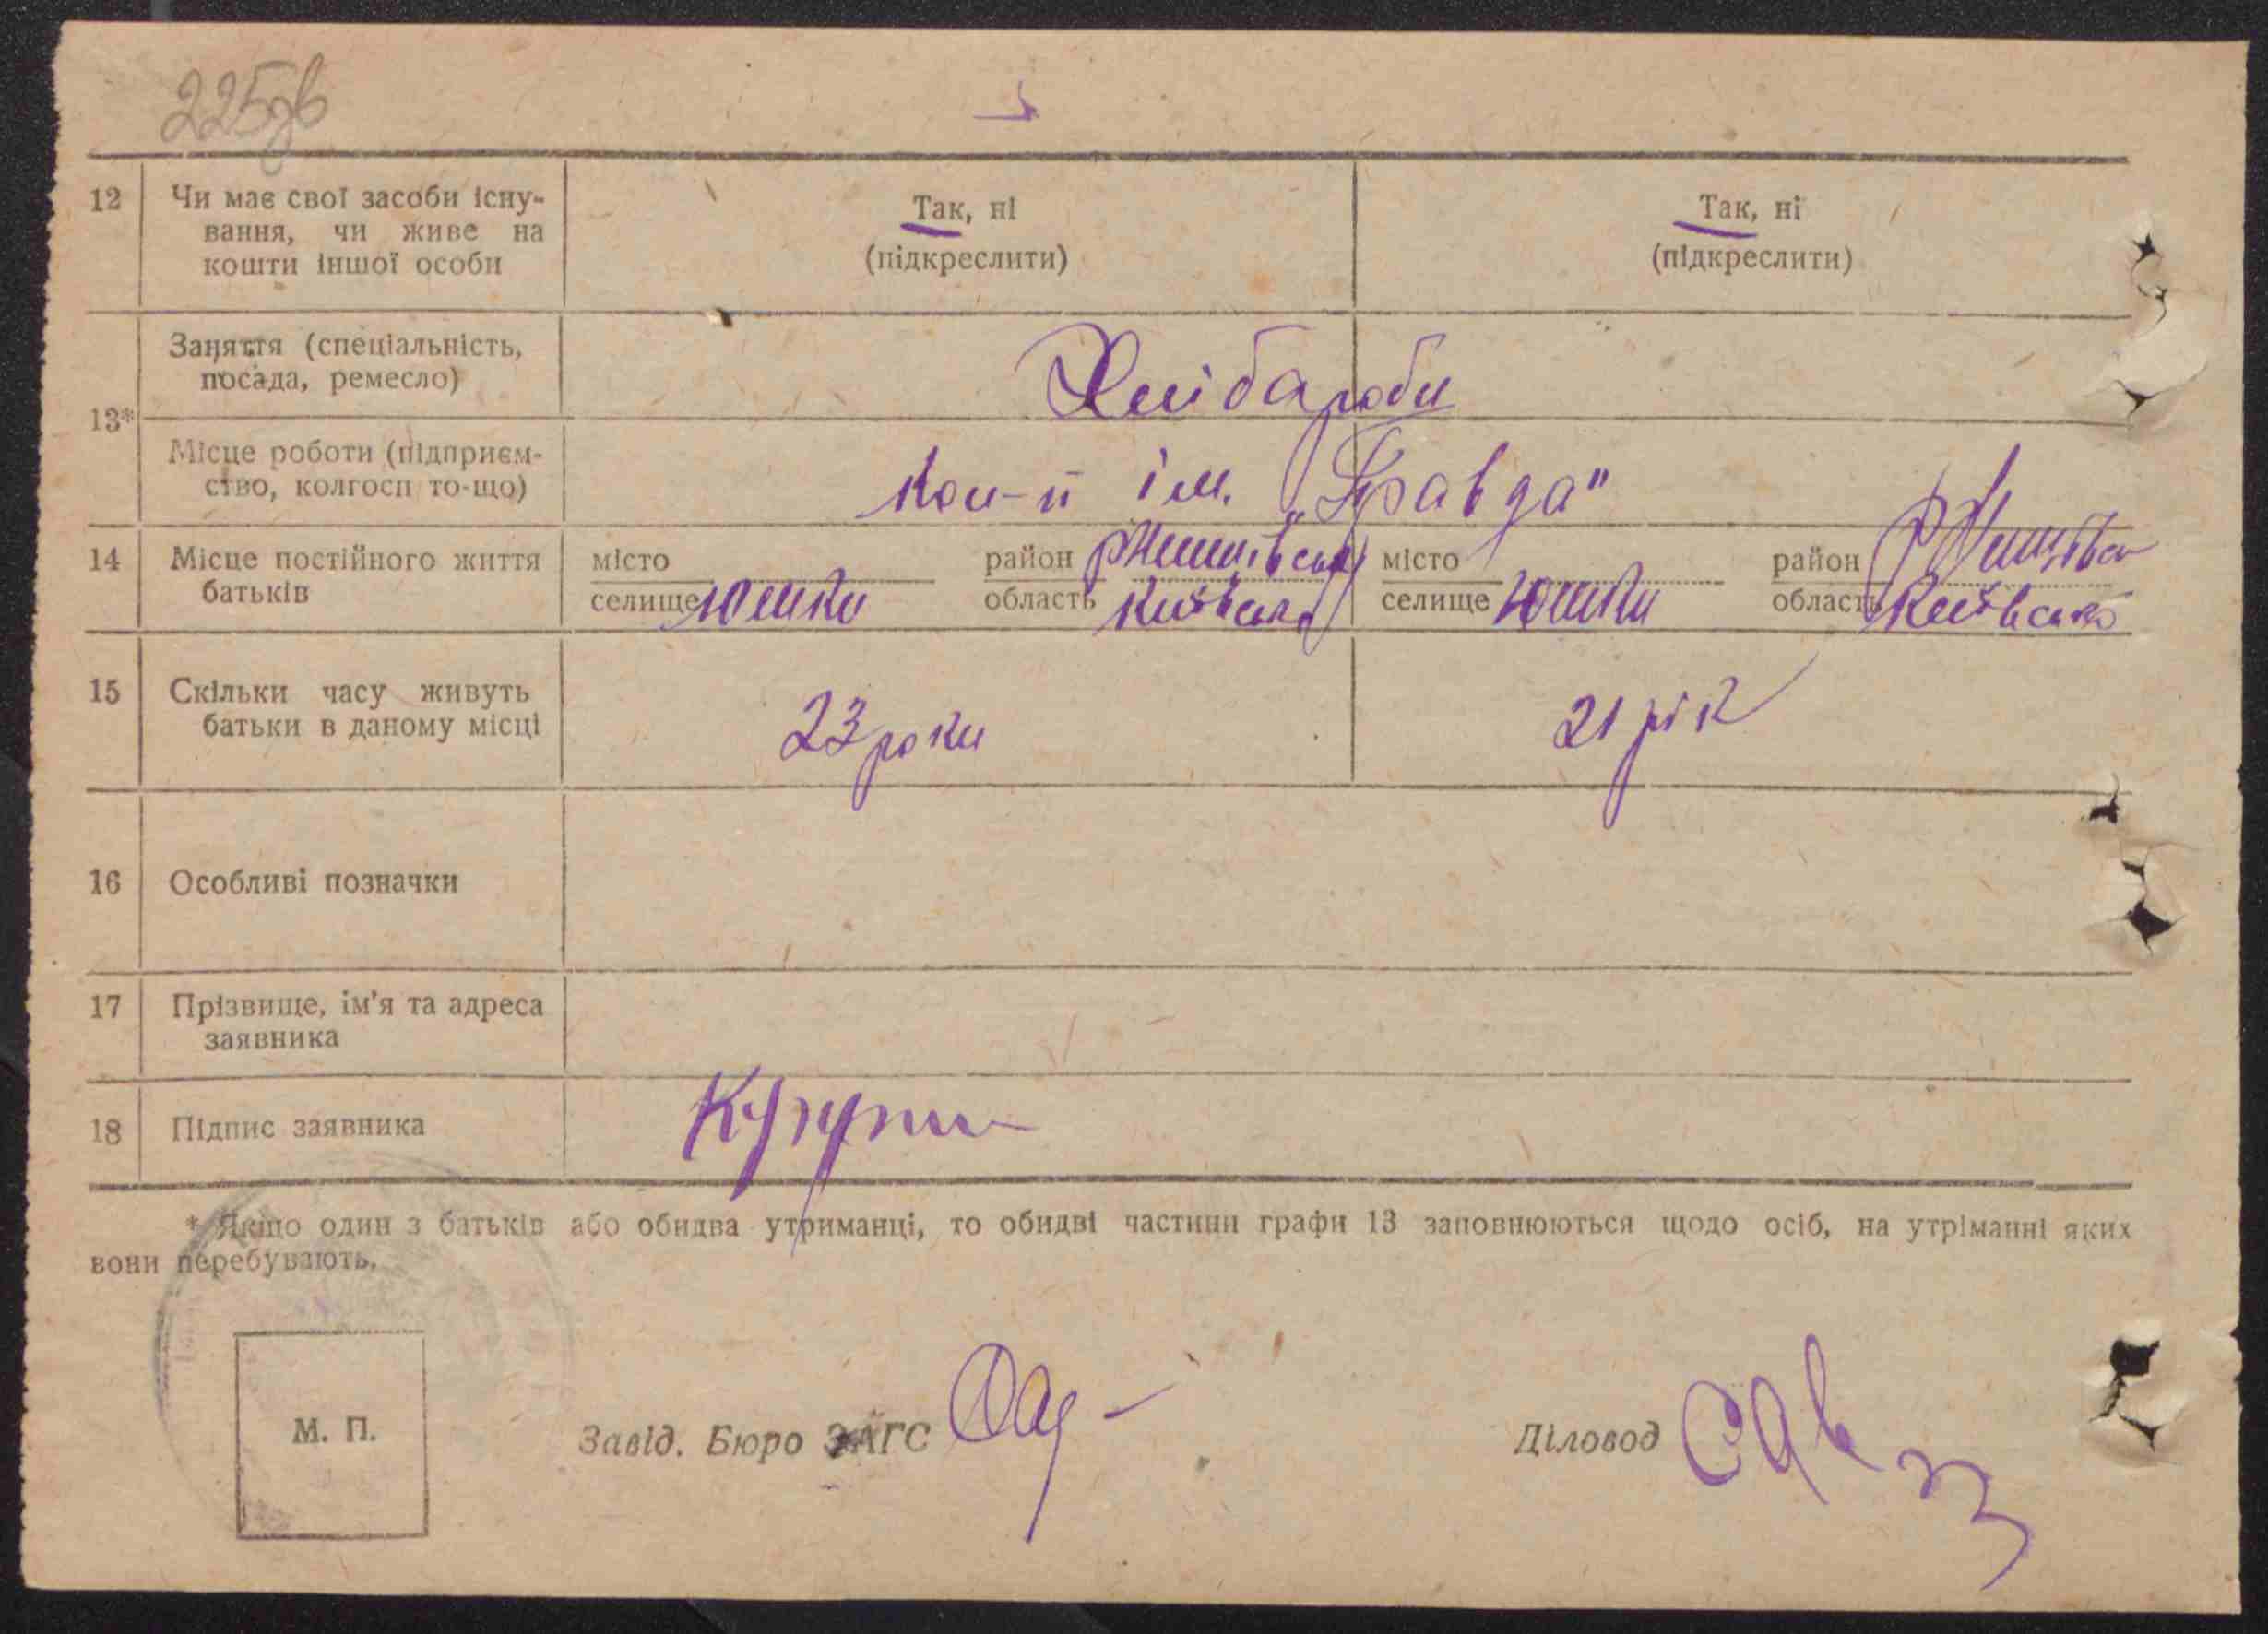 225зв
12 Чи має свої засоби існу-
вання, чи живе на
кошти іншої особи
Так, ні
(підкреслити)
Так, ні
(підкреслити)
13*
Заняття (спеціальність,
посада, ремесло)
Хлібароби
Місце роботи (підприєм-
ство, колгосп то-що)
ім. „Правда"
14 Місце постійного життя
батьків
місто
селище Юшки
район Ржищівськ
область Київська
місто
селище Юшки
район Ржищівськ
область Київська
15 Скільки часу живуть
батьки в даному місці
23 роки
21 рік
16 Особливі позначки
17 Прізвище, ім'я та адреса
заявника
18 Підпис заявника
* Якщо один з батьків або обидва утриманці, то обидві частини графи 13 заповнюються щодо осіб, на утріманні яких
вони перебувають.
М. П.
Завід. Бюро ЗАГС
Діловод